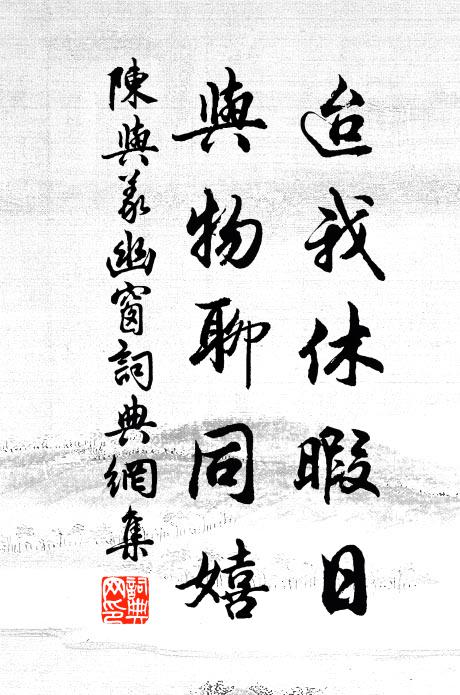 迨我休暇日
與物聊同嬉
陳與義幽窗詞典網集
詞典
网印